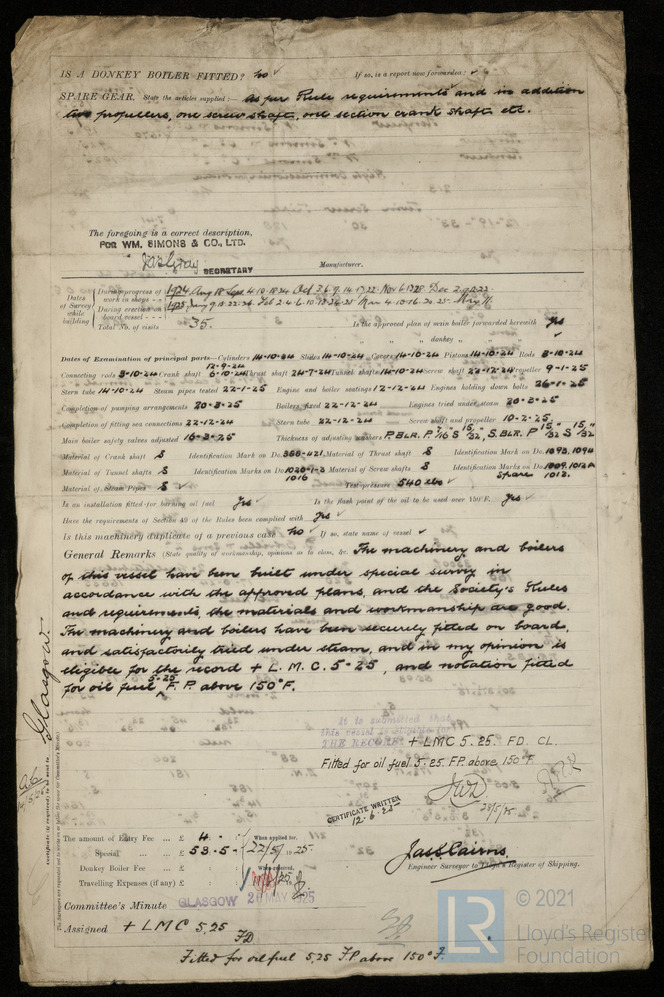 IS A DONKEY BOILER FITTED? No ✓ If so, is a report now forwarded? ✓
SPARE GEAR. State the articles supplied:— As per Rule requirements and in addition
two propellers, one screw shaft, one section crank shaft etc.
The foregoing is a correct description,
FOR WM. SIMONS & CO., LTD.
SECRETARY Manufacturer.
Dates of Survey while building
During progress of work in shops - - 1924. Aug 18 Sept 4.10.18.24 Oct 3.6.9.14.17.22 Nov 6.12.28 Dec 2.9.12.22
During erection on board vessel - - - 1925. Jany 9.13.22.26 Feb 2.4.6.10.13.26.28 Mar 4.10.16.20.25 May 11.
Total No. of visits 35. Is the approved plan of main boiler forwarded herewith Yes
" " " donkey " "
Dates of Examination of principal parts—Cylinders 14-10-24 Slides 14-10-24 Covers 14-10-24 Pistons 14-10-24 Rods 3-10-24
12-9-24
Connecting rods 3-10-24 Crank shaft 6-10-24 Thrust shaft 24-7-24 Tunnel shafts 14-10-24 Screw shaft 22-12-24 Propeller 9-1-25
Stern tube 14-10-24 Steam pipes tested 22-1-25 Engine and boiler seatings 12-12-24 Engines holding down bolts 26-1-25
Completion of pumping arrangements 20-3-25 Boilers fixed 22-12-24 Engines tried under steam 20-3-25
Completion of fitting sea connections 22-12-24 Stern tube 22-12-24 Screw shaft and propeller 10-2-25
Main boiler safety valves adjusted 16-3-25 Thickness of adjusting washers P.BLR. P 7/16 S 15/32, S.BLR. P 15/32 S 15/32
Material of Crank shaft S Identification Mark on Do. 388-421 Material of Thrust shaft S Identification Mark on Do. 1093.1094
Material of Tunnel shafts S Identification Marks on Do. 1020-1-3 1016 Material of Screw shafts S Identification Marks on Do. 1009.1012A
Spare 1012.
Material of Steam Pipes S ✓ Test pressure 540 lbs ✓
Is an installation fitted for burning oil fuel Yes ✓ Is the flash point of the oil to be used over 150°F. Yes ✓
Have the requirements of Section 49 of the Rules been complied with Yes ✓
Is this machinery duplicate of a previous case No ✓ If so, state name of vessel ✓
General Remarks (State quality of workmanship, opinions as to class, &c. The machinery and boilers
of this vessel have been built under special survey in
accordance with the approved plans, and the Society's Rules
and requirements, the materials and workmanship are good.
The machinery and boilers have been securely fitted on board,
and satisfactorily tried under steam, and in my opinion is
eligible for the record + L.M.C. 5-25, and notation fitted
for oil fuel 5-25 F.P. above 150°F.
Glasgow.
Certificate (if required) to be sent to
It is submitted that
this vessel is eligible for
THE RECORD + LMC 5.25. FD. CL.
Fitted for oil fuel 5.25. F.P. above 150°F
CERTIFICATE WRITTEN
12.6.25
The amount of Entry Fee ... £ 4. When applied for,
Special ... ... £ 53.5 22/5/1925.
Donkey Boiler Fee ... £ When received,
Travelling Expenses (if any) £
Jas Cairns.
Engineer Surveyor to Lloyd's Register of Shipping.
Committee's Minute GLASGOW 26 MAY 1925
Assigned + LMC 5,25
FD
Fitted for oil fuel 5,25 F.P. above 150°F.
LR
© 2021
Lloyd's Register
Foundation